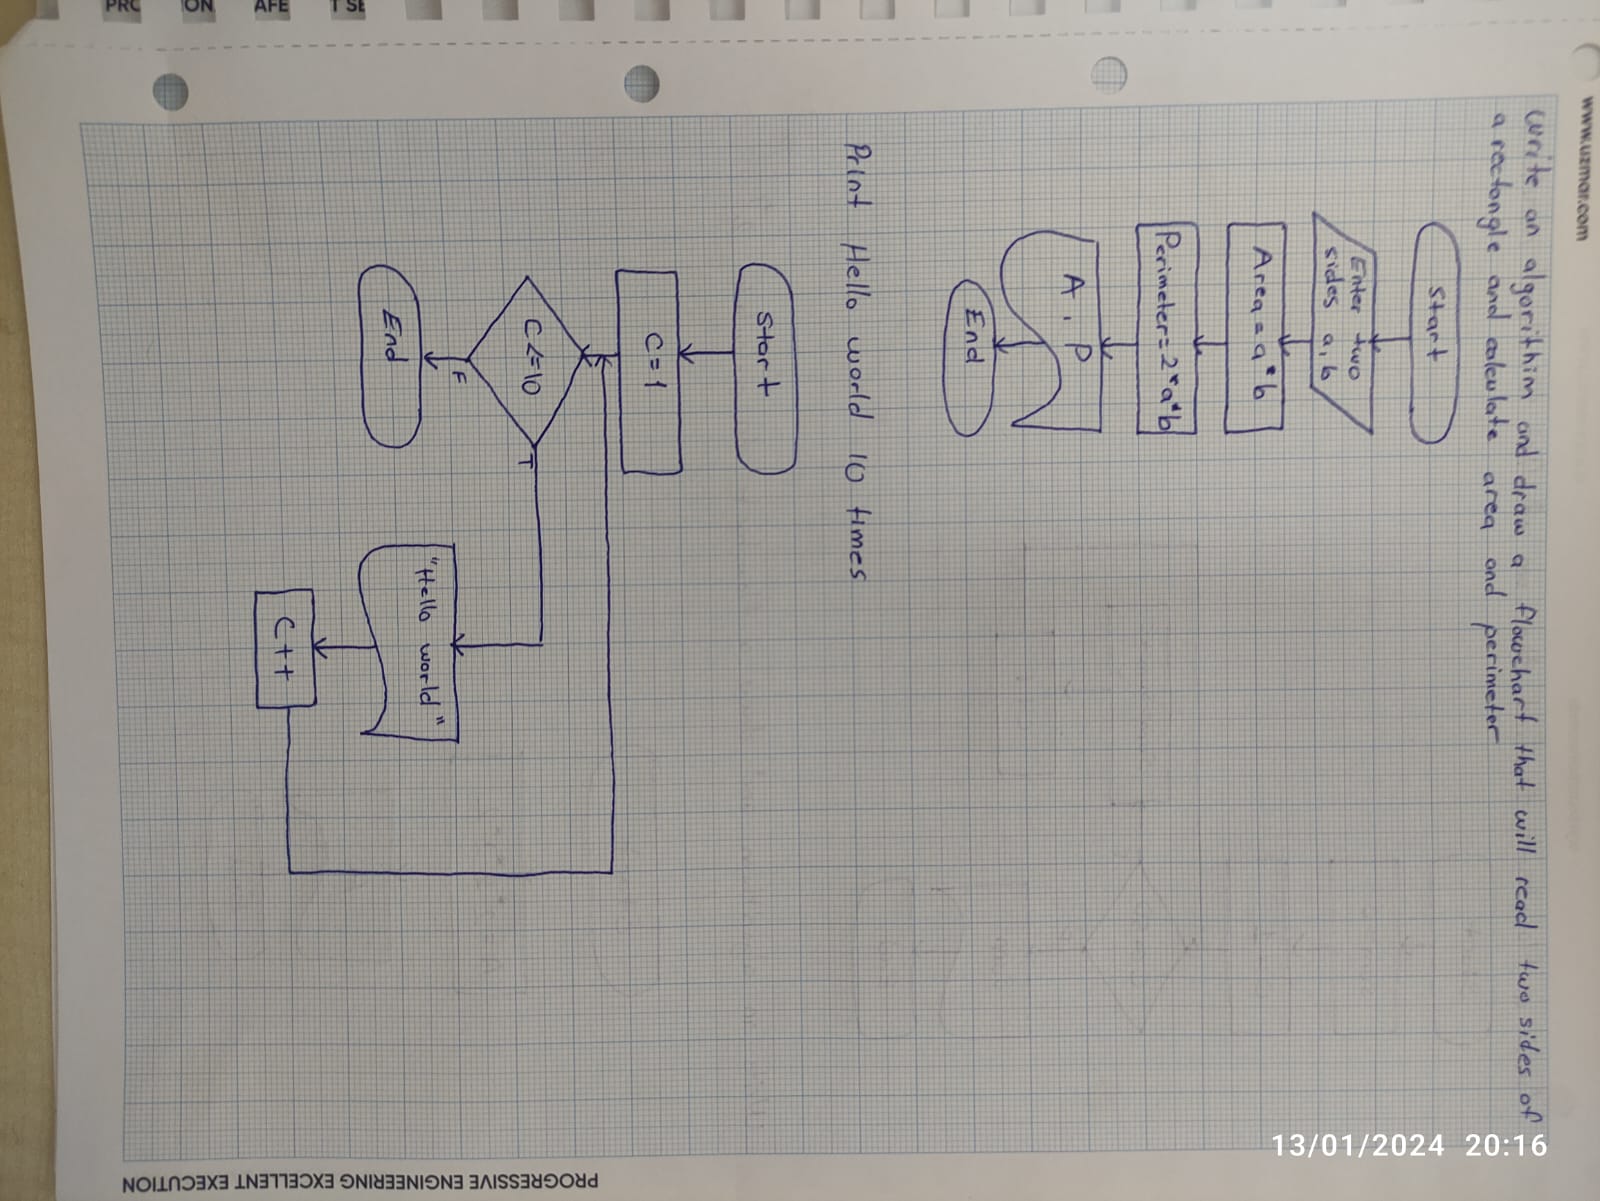 www.uzmar.com
write an algorithim and draw a flowchart that will read two sides of
a rectangle and calculate area and perimeter
Start
Enter two
sides a,b
Area = a*b
Perimeter = 2*a*b
A, P
End
Print Hello world 10 times
Start
C = 1
C <= 10
T
F
"Hello world"
C++
End
PROGRESSIVE ENGINEERING EXCELLENT EXECUTION
PRO
ON
AFE
T SE
13/01/2024 20:16